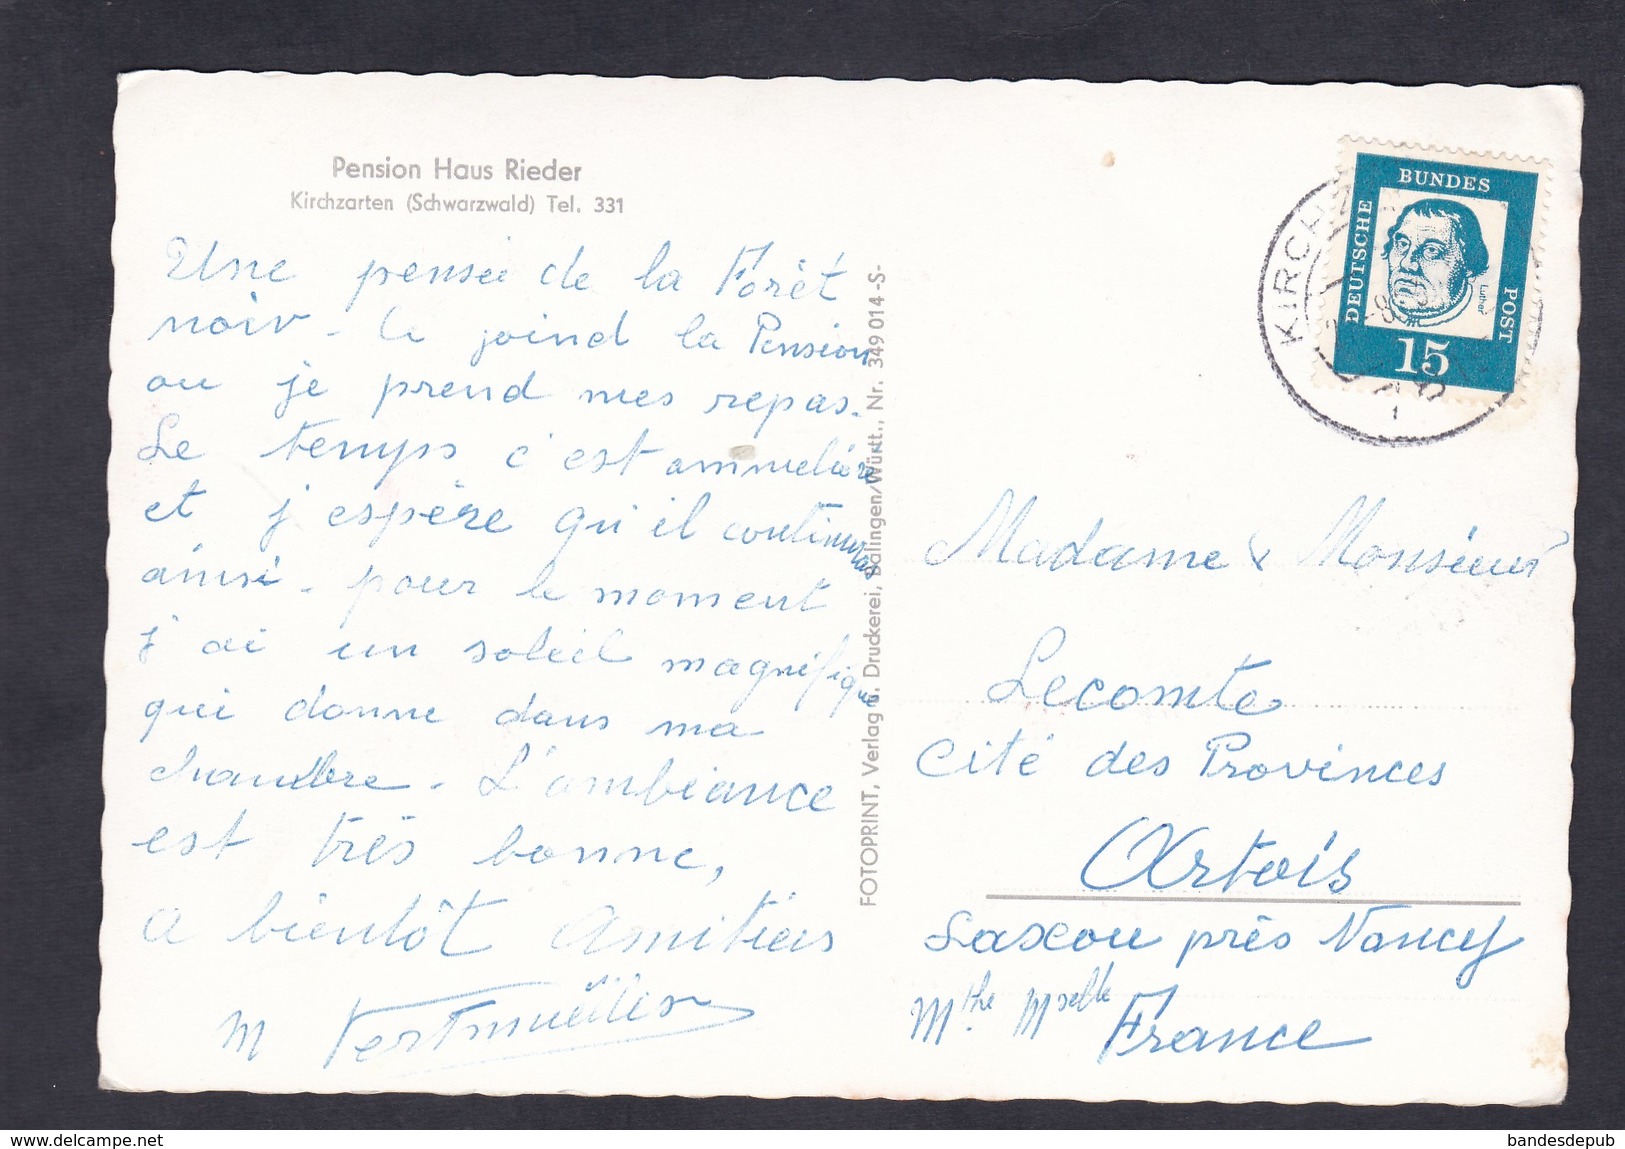 Pension Haus Rieder
Kirchzarten (Schwarzwald) Tel. 331
Une pensée de la Forêt
noir - Ce joind la Pension
ou je prend mes repas.
Le temps c'est ammelière
et j'espère qu'il continuras
ainsi - pour le moment
j'ai un soleil magnifique
qui donne dans ma
chambre - L'ambiance
est très bonne,
A bientôt Amitiés
M
FOTOPRINT, Verlag u. Druckerei, Balingen/Württ., Nr. 349 014 -S-
DEUTSCHE BUNDES POST
Luther
15
KIRCHZ
1
Madame & Monsieur
Lecomte
Cité des Provinces
Artois
Laxou près Nancy
Mthe Mselle
France
delcampe.net
bandesdepub